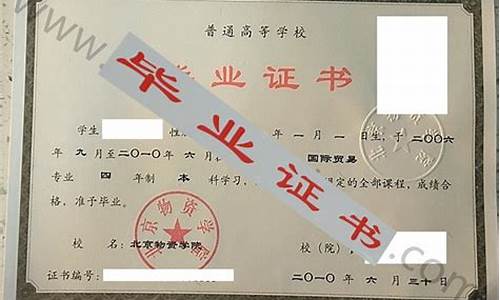 普通高等学校
毕业证书
毕业证书
学生 性 年 一 月 一 日生，于 二〇〇六
年 九 月至 二〇一〇 年 六 月 国际贸易
专业 四 年制 本 科学习， 定的全部课程，成绩合
格，准予毕业。
北京物资学院
校 名： 北京物资学院 校（院）
证书编号： 二〇一〇 年 六 月 三十 日